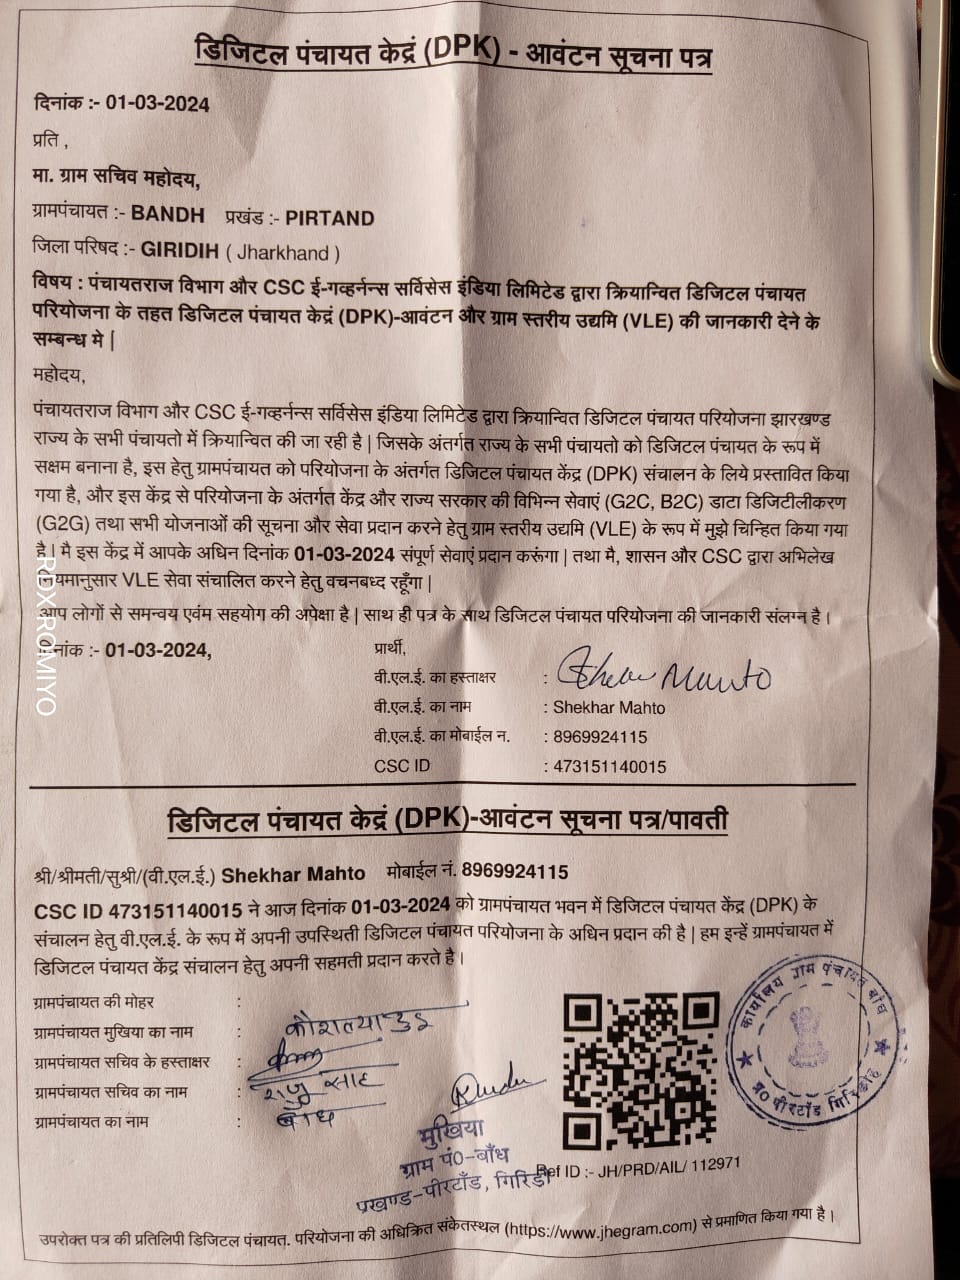 डिजिटल पंचायत केद्रं (DPK) - आवंटन सूचना पत्र
दिनांक :- 01-03-2024
प्रति ,
मा. ग्राम सचिव महोदय,
ग्रामपंचायत :- BANDH प्रखंड :- PIRTAND
जिला परिषद :- GIRIDIH ( Jharkhand )
विषय : पंचायतराज विभाग और CSC ई-गव्हर्नन्स सर्विसेस इंडिया लिमिटेड द्वारा क्रियान्वित डिजिटल पंचायत
परियोजना के तहत डिजिटल पंचायत केद्रं (DPK)-आवंटन और ग्राम स्तरीय उद्यमि (VLE) की जानकारी देने के
सम्बन्ध मे |
महोदय,
पंचायतराज विभाग और CSC ई-गव्हर्नन्स सर्विसेस इंडिया लिमिटेड द्वारा क्रियान्वित डिजिटल पंचायत परियोजना झारखण्ड
राज्य के सभी पंचायतो में क्रियान्वित की जा रही है | जिसके अंतर्गत राज्य के सभी पंचायतो को डिजिटल पंचायत के रूप में
सक्षम बनाना है, इस हेतु ग्रामपंचायत को परियोजना के अंतर्गत डिजिटल पंचायत केंद्र (DPK) संचालन के लिये प्रस्तावित किया
गया है, और इस केंद्र से परियोजना के अंतर्गत केंद्र और राज्य सरकार की विभिन्न सेवाएं (G2C, B2C) डाटा डिजिटीलीकरण
(G2G) तथा सभी योजनाओं की सूचना और सेवा प्रदान करने हेतु ग्राम स्तरीय उद्यमि (VLE) के रूप में मुझे चिन्हित किया गया
है | मै इस केंद्र में आपके अधिन दिनांक 01-03-2024 संपूर्ण सेवाएं प्रदान करूंगा | तथा मै, शासन और CSC द्वारा अभिलेख
नियमानुसार VLE सेवा संचालित करने हेतु वचनबध्द रहूँगा |
आप लोगों से समन्वय एवंम सहयोग की अपेक्षा है | साथ ही पत्र के साथ डिजिटल पंचायत परियोजना की जानकारी संलग्न है |
दिनांक :- 01-03-2024,
प्रार्थी,
वी.एल.ई. का हस्ताक्षर : Shekhar Mahto
वी.एल.ई. का नाम : Shekhar Mahto
वी.एल.ई. का मोबाईल न. : 8969924115
CSC ID : 473151140015
RDX ROMIYO
डिजिटल पंचायत केद्रं (DPK)-आवंटन सूचना पत्र/पावती
श्री/श्रीमती/सुश्री/(वी.एल.ई.) Shekhar Mahto मोबाईल नं. 8969924115
CSC ID 473151140015 ने आज दिनांक 01-03-2024 को ग्रामपंचायत भवन में डिजिटल पंचायत केंद्र (DPK) के
संचालन हेतु वी.एल.ई. के रूप में अपनी उपस्थिती डिजिटल पंचायत परियोजना के अधिन प्रदान की है | हम इन्हें ग्रामपंचायत में
डिजिटल पंचायत केंद्र संचालन हेतु अपनी सहमती प्रदान करते है |
ग्रामपंचायत की मोहर :
ग्रामपंचायत मुखिया का नाम :
ग्रामपंचायत सचिव के हस्ताक्षर :
ग्रामपंचायत सचिव का नाम : राजु साह
ग्रामपंचायत का नाम : बाँध
मुखिया
ग्राम पं०-बाँध
प्रखण्ड-पीरटाँड, गिरिडीह
कार्यालय ग्राम पंचायत बांध
प्र० पीरटाँड गिरिडीह
Ref ID :- JH/PRD/AIL/ 112971
उपरोक्त पत्र की प्रतिलिपी डिजिटल पंचायत. परियोजना की अधिक्रित संकेतस्थल (https://www.jhegram.com) से प्रमाणित किया गया है |